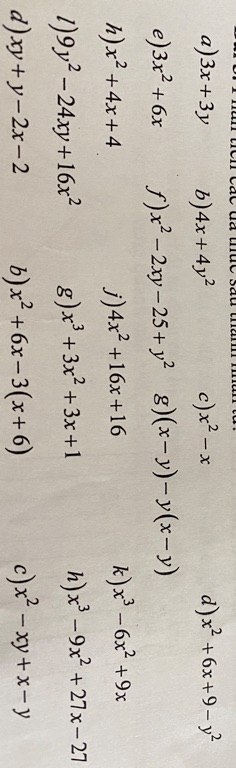 Phân tích các đa thức sau thành nhân tử:
a)3x+3y b)4x+4y² c)x²−x d)x²+6x+9−y²
e)3x²+6x f)x²−2xy−25+y² g)(x−y)−y(x−y)
h)x²+4x+4 j)4x²+16x+16 k)x³−6x²+9x
l)9y²−24xy+16x² g)x³+3x²+3x+1 h)x³−9x²+27x−27
d)xy+y−2x−2 b)x²+6x−3(x+6) c)x²−xy+x−y